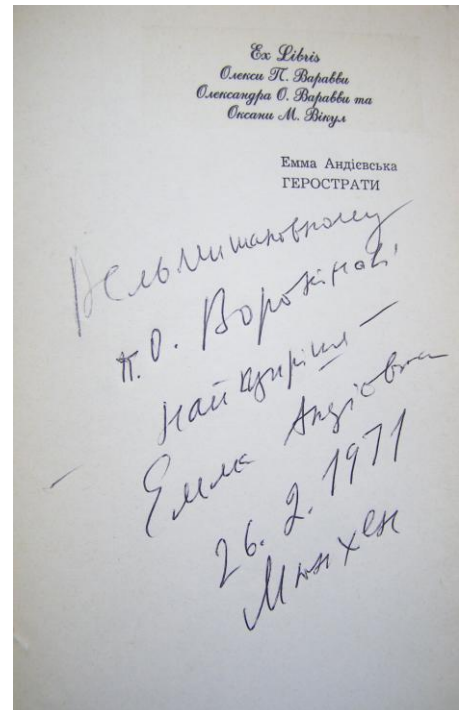 Ex Libris
Олекси П. Варавви
Олександра О. Варавви та
Оксани М. Вікул
Емма Андієвська
ГЕРОСТРАТИ
Вельмишановному
п. О. Вороніцеві
найщиріше —
Емма Андієвська
26. 2. 1971
Мюнхен